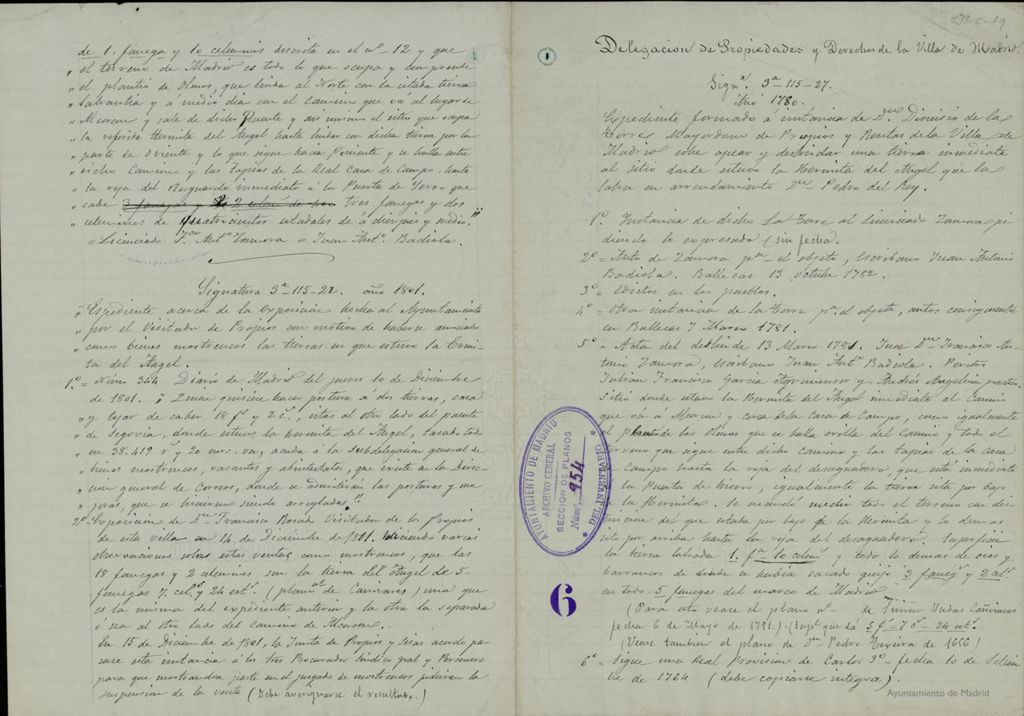 de 1. fanega y 10 celemines descrita en el nº 12 y que
" el terreno de Madrid es todo lo que ocupa y comprende
" el plantio de Olmos, que linda al Norte con la citada tierra
" labrantia y a medio dia con el Camino que va al lugar de
" Alcorcon y sale de dicho Puente y asi mismo el sitio que ocupa
" la referida Hermita del Angel hasta lindar con dicha tierra por la
" parte de Oriente y lo que sigue hacia Poniente y se halla entre
" dicho Camino y las Tapias de la Real Casa de Campo, hasta
" la reja del Resguardo inmediato à la Puerta de Yerro que
" cabe tres fanegas y dos
" celemines de quatrocientos estadales de à diez pies y medio."
= Licenciado Fco Antº Zamora = Juan Antº Badiola.
Signatura 3ª-115-22. año 1801.
" Expediente acerca de la exposicion hecha al Ayuntamiento
" por el Visitador de Propios con motivo de haberse anunciado
" como bienes mostrencos las tierras en que estuvo la Ermi-
" ta del Angel.
1º = Num 344 Diario de Madrid del jueves 10 de Diciembre
" de 1801. " Quien quisiere hacer postura a dos tierras, casa
" y tejar de caber 18 fs y 2 c, sitas al otro lado del puente
" de Segovia, donde estuvo la hermita del Angel, tasado todo
" en 38.419 r y 20 mrs. vn, acuda à la Subdelegacion general de
" bienes mostrencos, vacantes y abintestatos, que existe en la Direc-
" cion general de Correos, donde se admitiran las posturas y me-
" joras, que se hicieren siendo arregladas."
2º = Exposicion de Dn Francisco Rosado Visitador de los Propios
de esta villa en 14 de Diciembre de 1801. Haciendo varias
observaciones sobre estas ventas como mostrencos, que las
18 fanegas y 2 celemines son la tierra del Angel de 5-
fanegas 7. cels y 24 ests. (plano de Cañizares) una que
es la misma del expediente anterior y la otra la separada
ó sea al otro lado del camino de Alcorcon.
En 15 de Diciembre de 1801, la Junta de Propios y Sisas acordó pa-
sase esta instancia à los Sres Procurador Sindico gral y Personero
para que mostrandose parte en el juzgado de mostrencos pidieran la
suspension de la venta (Debe averiguarse el resultado.)
032-6-19
Delegacion de Propiedades y Derechos de la Villa de Madrid.
Signª 3ª-115-27.
Año 1780.
Expediente formado à instancia de Dn Dionisio de la
Torre Mayordomo de Propios y Rentas de la Villa de
Madrid sobre apear y deslindar una tierra inmediata
al sitio donde estuvo la Hermita del Angel que la
labra en arrendamiento Dn Pedro del Rey.
1º = Instancia de dicho La Torre al Licenciado Zamora pi-
diendo lo expresado (sin fecha.
2º = Auto de Zamora pª el objeto, escribano Juan Antonio
Badiola. Ballecas 13 octubre 1782.
3º = Edictos en los pueblos.
4º = Otra instancia de la Torre pª el objeto, autos consiguientes
en Ballecas 7 Marzo 1781.
5º = Acta del deslinde 13 Marzo 1781. Juez Dn Francisco An-
tonio Zamora, escribano Juan Antº Badiola. Peritos
Julian Francisco Garcia Agrimensor y Andrés
Sitio donde estuvo la Hermita del Angel inmediato al Camino
que vá à Alcorcon y cerca de la Casa de Campo, como igualmente
el plantio de los Olmos que se halla orilla del Camino y todo el
terreno que sigue entre dicho camino y las tapias de la Casa
de Campo hasta la reja del desaguadero, que está inmediata
à la Puerta de hierro, igualmente la tierra sita por bajo
de la Hermita. Se mandó medir todo el terreno con dis-
tincion del que estaba por bajo de la Hermita y lo demas
sito por arriba hasta la reja del desaguadero. Superficie
la tierra labrada 1. fa 10 celem y todo lo demas de eras y
barrancos de donde se habia sacado guijo 3 faneg y 2 cels
en todo 5 fanegas del marco de Madrid
(Para esto vease el plano nº de Fermin Vidas Cañizares
fecha 6 de Mayo de 1791.) - (Supe que dá 5 f - 7 cs - 24 est.
(Vease tambien el plano de Dn Pedro Texeira de 1656)
6º = Sigue una Real Provision de Carlos 3º - fecha 10 de Setiem-
bre de 1764 (debe copiarse integra).
AYUNTAMIENTO DE MADRID
ARCHIVO GENERAL
SECCION DE PLANOS
Núm. 954
DEL INVENTARIO
6
Ayuntamiento de Madrid